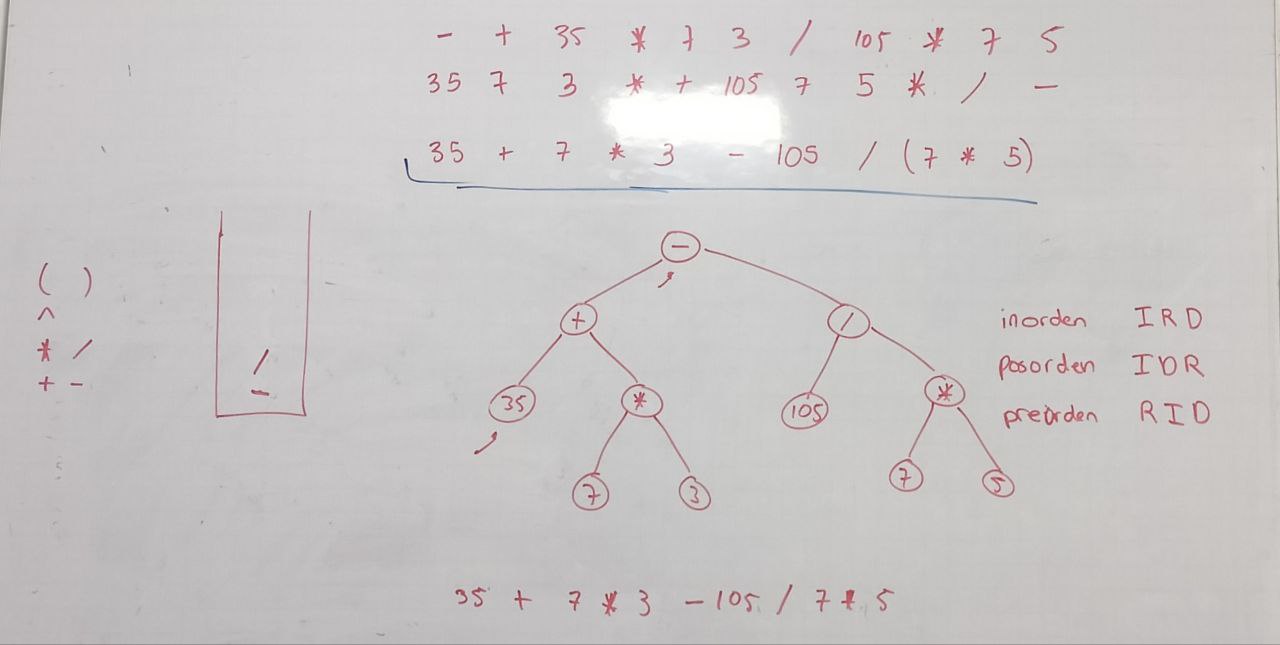 - + 35 * 7 3 / 105 * 7 5
35 7 3 * + 105 7 5 * / -
35 + 7 * 3 - 105 / (7 * 5)
-
+ /
35 * 105 *
7 3 7 5
( )
^
* /
+ -
/
-
inorden IRD
posorden IDR
preorden RID
35 + 7 * 3 - 105 / 7 * 5